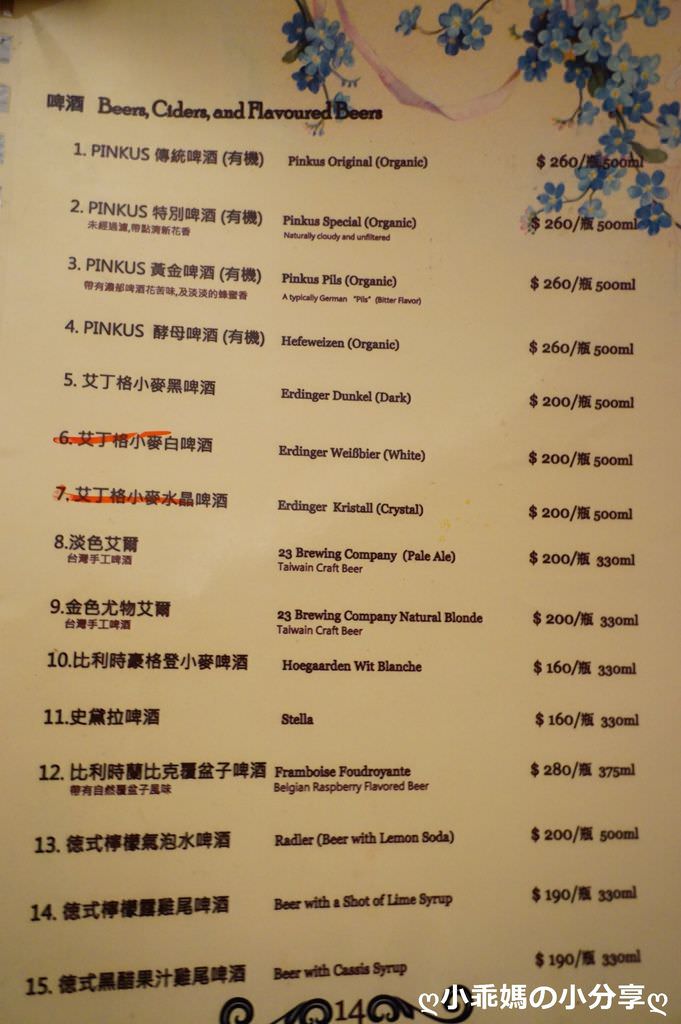 啤酒 Beers, Ciders, and Flavoured Beers
1. PINKUS 傳統啤酒 (有機) Pinkus Original (Organic) $ 260/瓶 500ml
2. PINKUS 特別啤酒 (有機) Pinkus Special (Organic) $ 260/瓶 500ml
未經過濾,帶點清新花香 Naturally cloudy and unfiltered
3. PINKUS 黃金啤酒 (有機) Pinkus Pils (Organic) $ 260/瓶 500ml
帶有濃郁啤酒花苦味,及淡淡的蜂蜜香 A typically German "Pils" (Bitter Flavor)
4. PINKUS 酵母啤酒 (有機) Hefeweizen (Organic) $ 260/瓶 500ml
5. 艾丁格小麥黑啤酒 Erdinger Dunkel (Dark) $ 200/瓶 500ml
6. 艾丁格小麥白啤酒 Erdinger Weißbier (White) $ 200/瓶 500ml
7. 艾丁格小麥水晶啤酒 Erdinger Kristall (Crystal) $ 200/瓶 500ml
8.淡色艾爾 23 Brewing Company (Pale Ale) $ 200/瓶 330ml
台灣手工啤酒 Taiwain Craft Beer
9.金色尤物艾爾 23 Brewing Company Natural Blonde $ 200/瓶 330ml
台灣手工啤酒 Taiwain Craft Beer
10.比利時豪格登小麥啤酒 Hoegaarden Wit Blanche $ 160/瓶 330ml
11.史黛拉啤酒 Stella $ 160/瓶 330ml
12. 比利時蘭比克覆盆子啤酒 Framboise Foudroyante $ 280/瓶 375ml
帶有自然覆盆子風味 Belgian Raspberry Flavored Beer
13. 德式檸檬氣泡水啤酒 Radler (Beer with Lemon Soda) $ 200/瓶 500ml
14. 德式檸檬露雞尾啤酒 Beer with a Shot of Lime Syrup $ 190/瓶 330ml
15. 德式黑醋果汁雞尾啤酒 Beer with Cassis Syrup $ 190/瓶 330ml
14
ღ小乖媽の小分享ღ